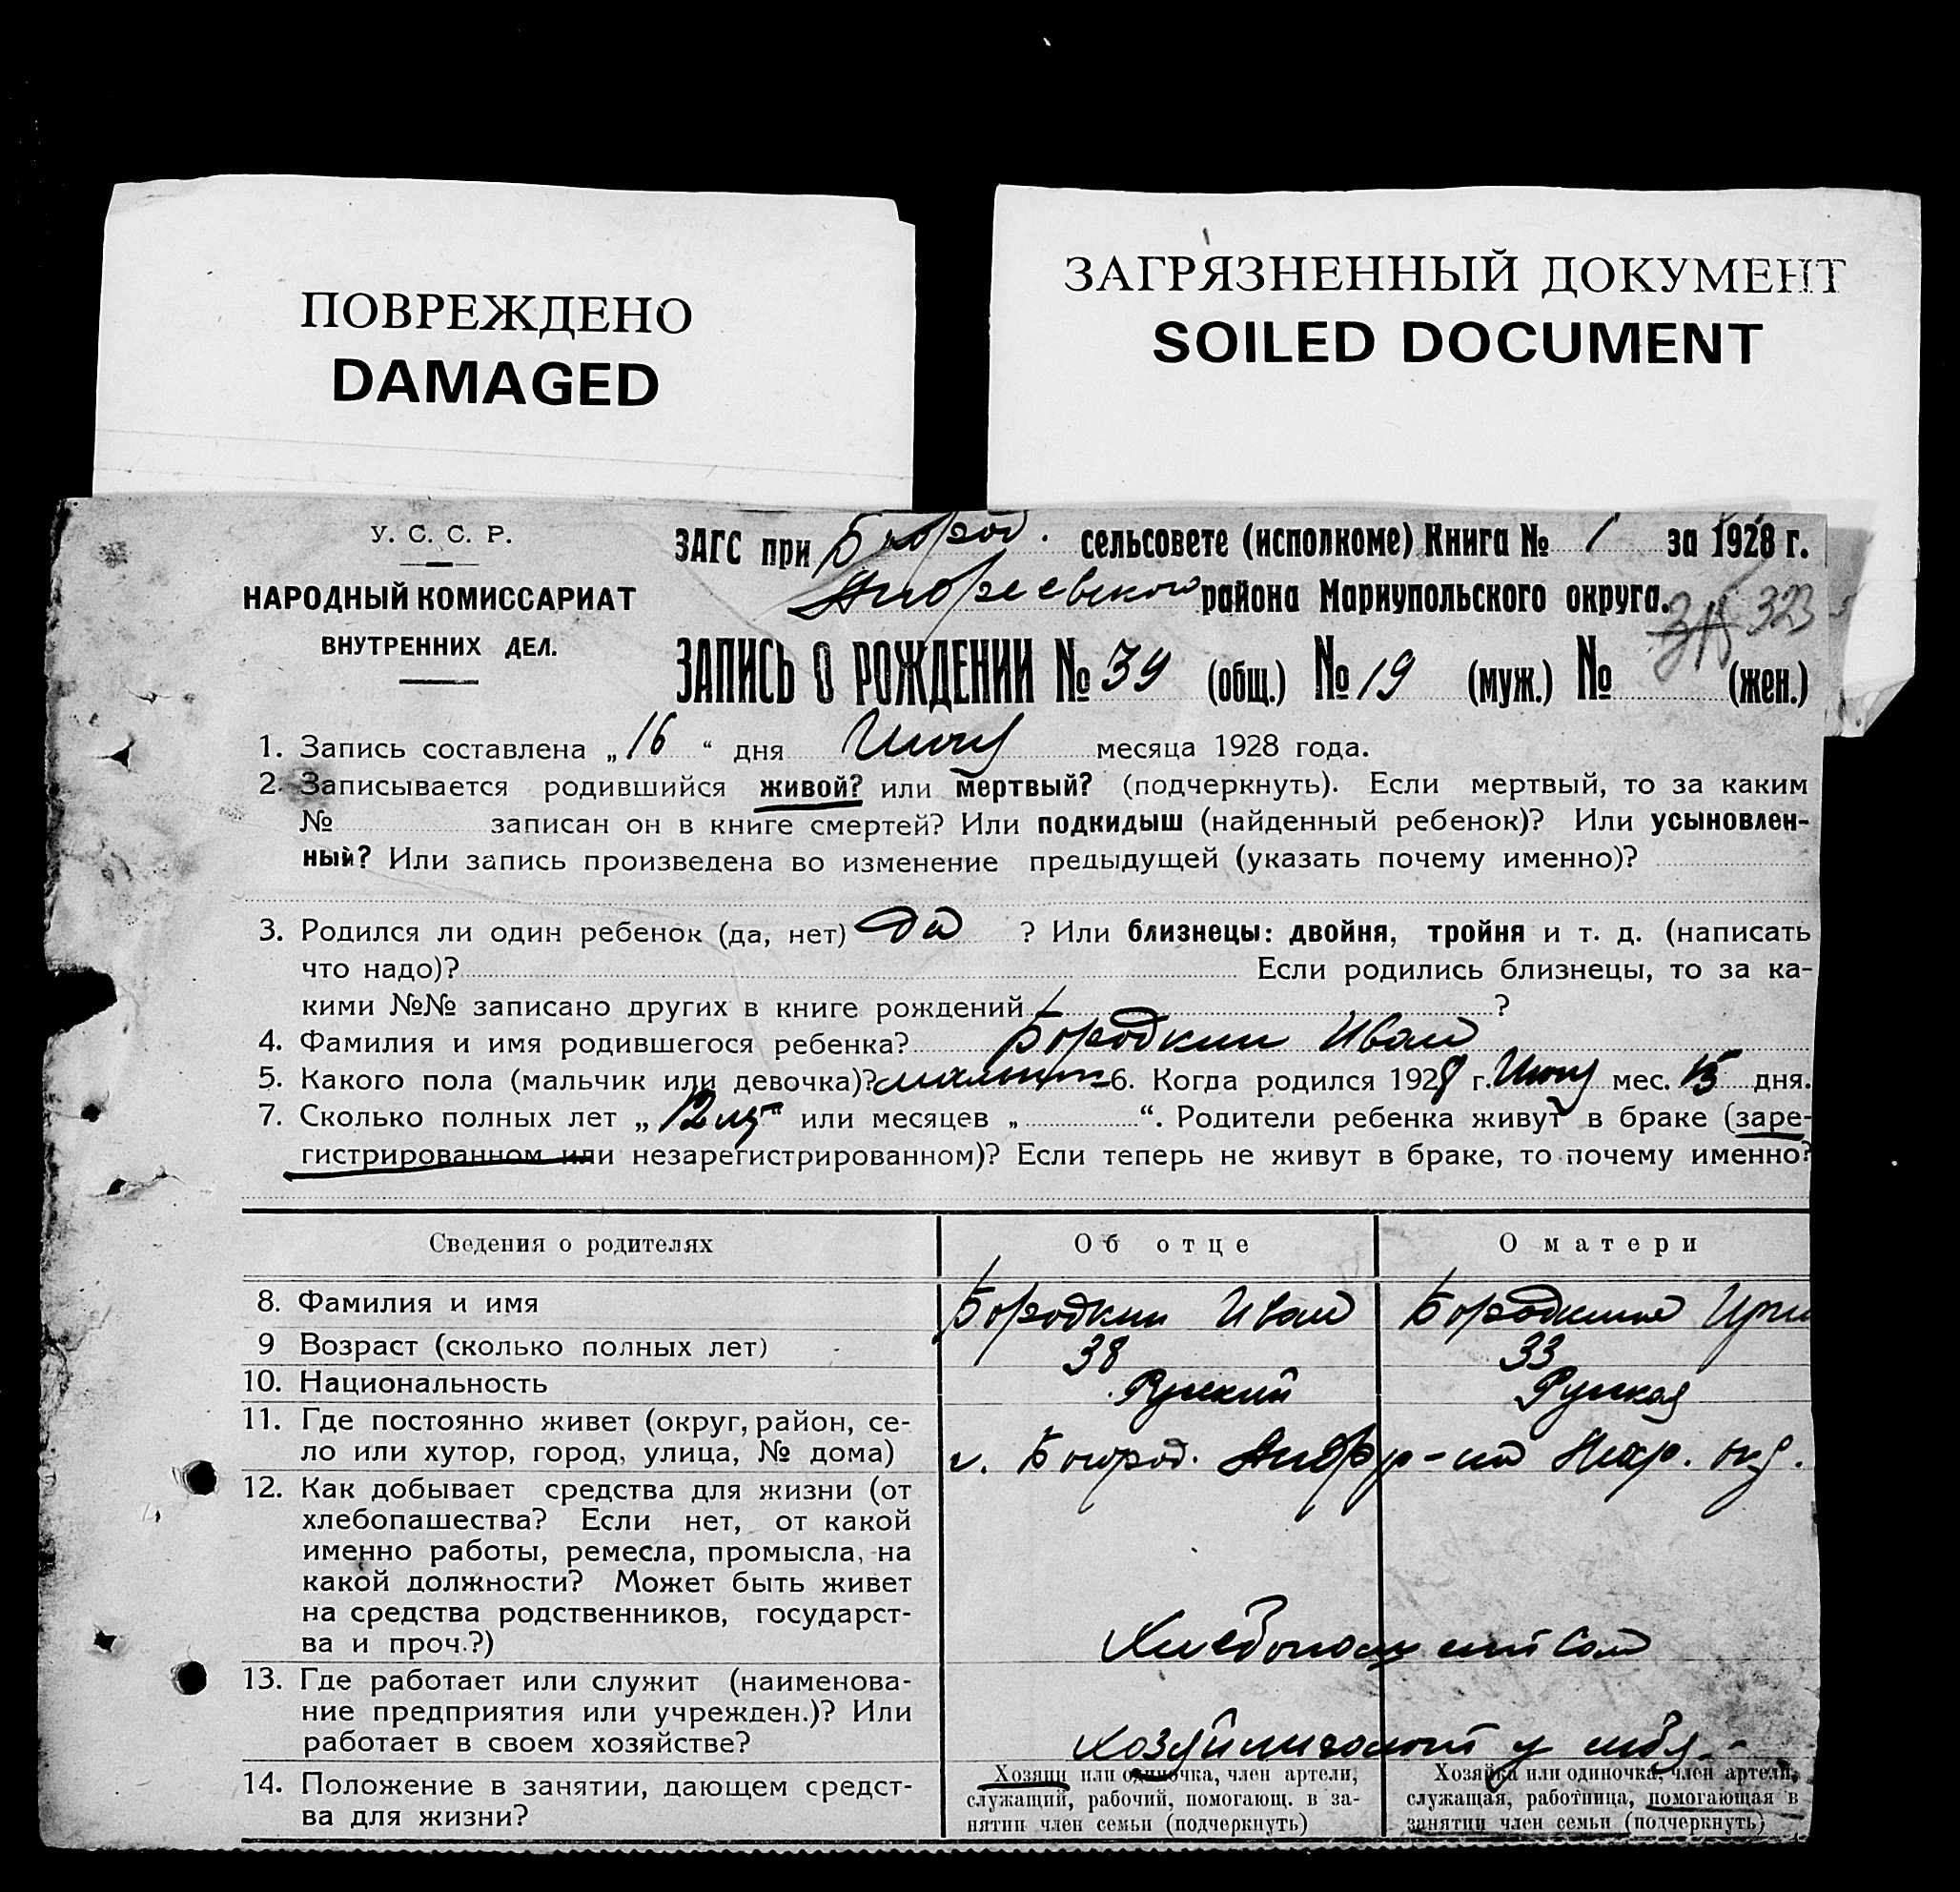 ПОВРЕЖДЕНО
DAMAGED
ЗАГРЯЗНЕННЫЙ ДОКУМЕНТ
SOILED DOCUMENT
У. С. С. Р.
НАРОДНЫЙ КОМИССАРИАТ
ВНУТРЕННИХ ДЕЛ.
ЗАГС при Богород. сельсовете (исполкоме) Книга № 1 за 1928 г.
района Мариупольского округа.
323
ЗАПИСЬ О РОЖДЕНИИ № 39 (общ.) № 19 (муж.) № (жен.)
1. Запись составлена „16“ дня месяца 1928 года.
2. Записывается родившийся живой? или мертвый? (подчеркнуть). Если мертвый, то за каким
№ записан он в книге смертей? Или подкидыш (найденный ребенок)? Или усыновлен-
ный? Или запись произведена во изменение предыдущей (указать почему именно)?
3. Родился ли один ребенок (да, нет) да ? Или близнецы: двойня, тройня и т. д. (написать
что надо)? Если родились близнецы, то за ка-
кими №№ записано других в книге рождений ?
4. Фамилия и имя родившегося ребенка? Бородкин Иван
5. Какого пола (мальчик или девочка)? мальчик 6. Когда родился 1928 г. мес. 15 дня.
7. Сколько полных лет „12 “ или месяцев „ “. Родители ребенка живут в браке (заре-
гистрированном или незарегистрированном)? Если теперь не живут в браке, то почему именно?
Сведения о родителях Об отце О матери
8. Фамилия и имя Бородкин Иван Бородкина
9 Возраст (сколько полных лет) 38 33
10. Национальность Русский Русская
11. Где постоянно живет (округ, район, се-
ло или хутор, город, улица, № дома) Богород.
12. Как добывает средства для жизни (от
хлебопашества? Если нет, от какой
именно работы, ремесла, промысла, на
какой должности? Может быть живет
на средства родственников, государст-
ва и проч.?) Хлебопашеством
13. Где работает или служит (наименова-
ние предприятия или учрежден.)? Или
работает в своем хозяйстве? у себя
14. Положение в занятии, дающем средст-
ва для жизни?
Хозяин или одиночка, член артели,
служащий, рабочий, помогающ. в за-
нятии член семьи (подчеркнуть)
Хозяйка или одиночка, член артели,
служащая, работница, помогающая в
занятии член семьи (подчеркнуть)